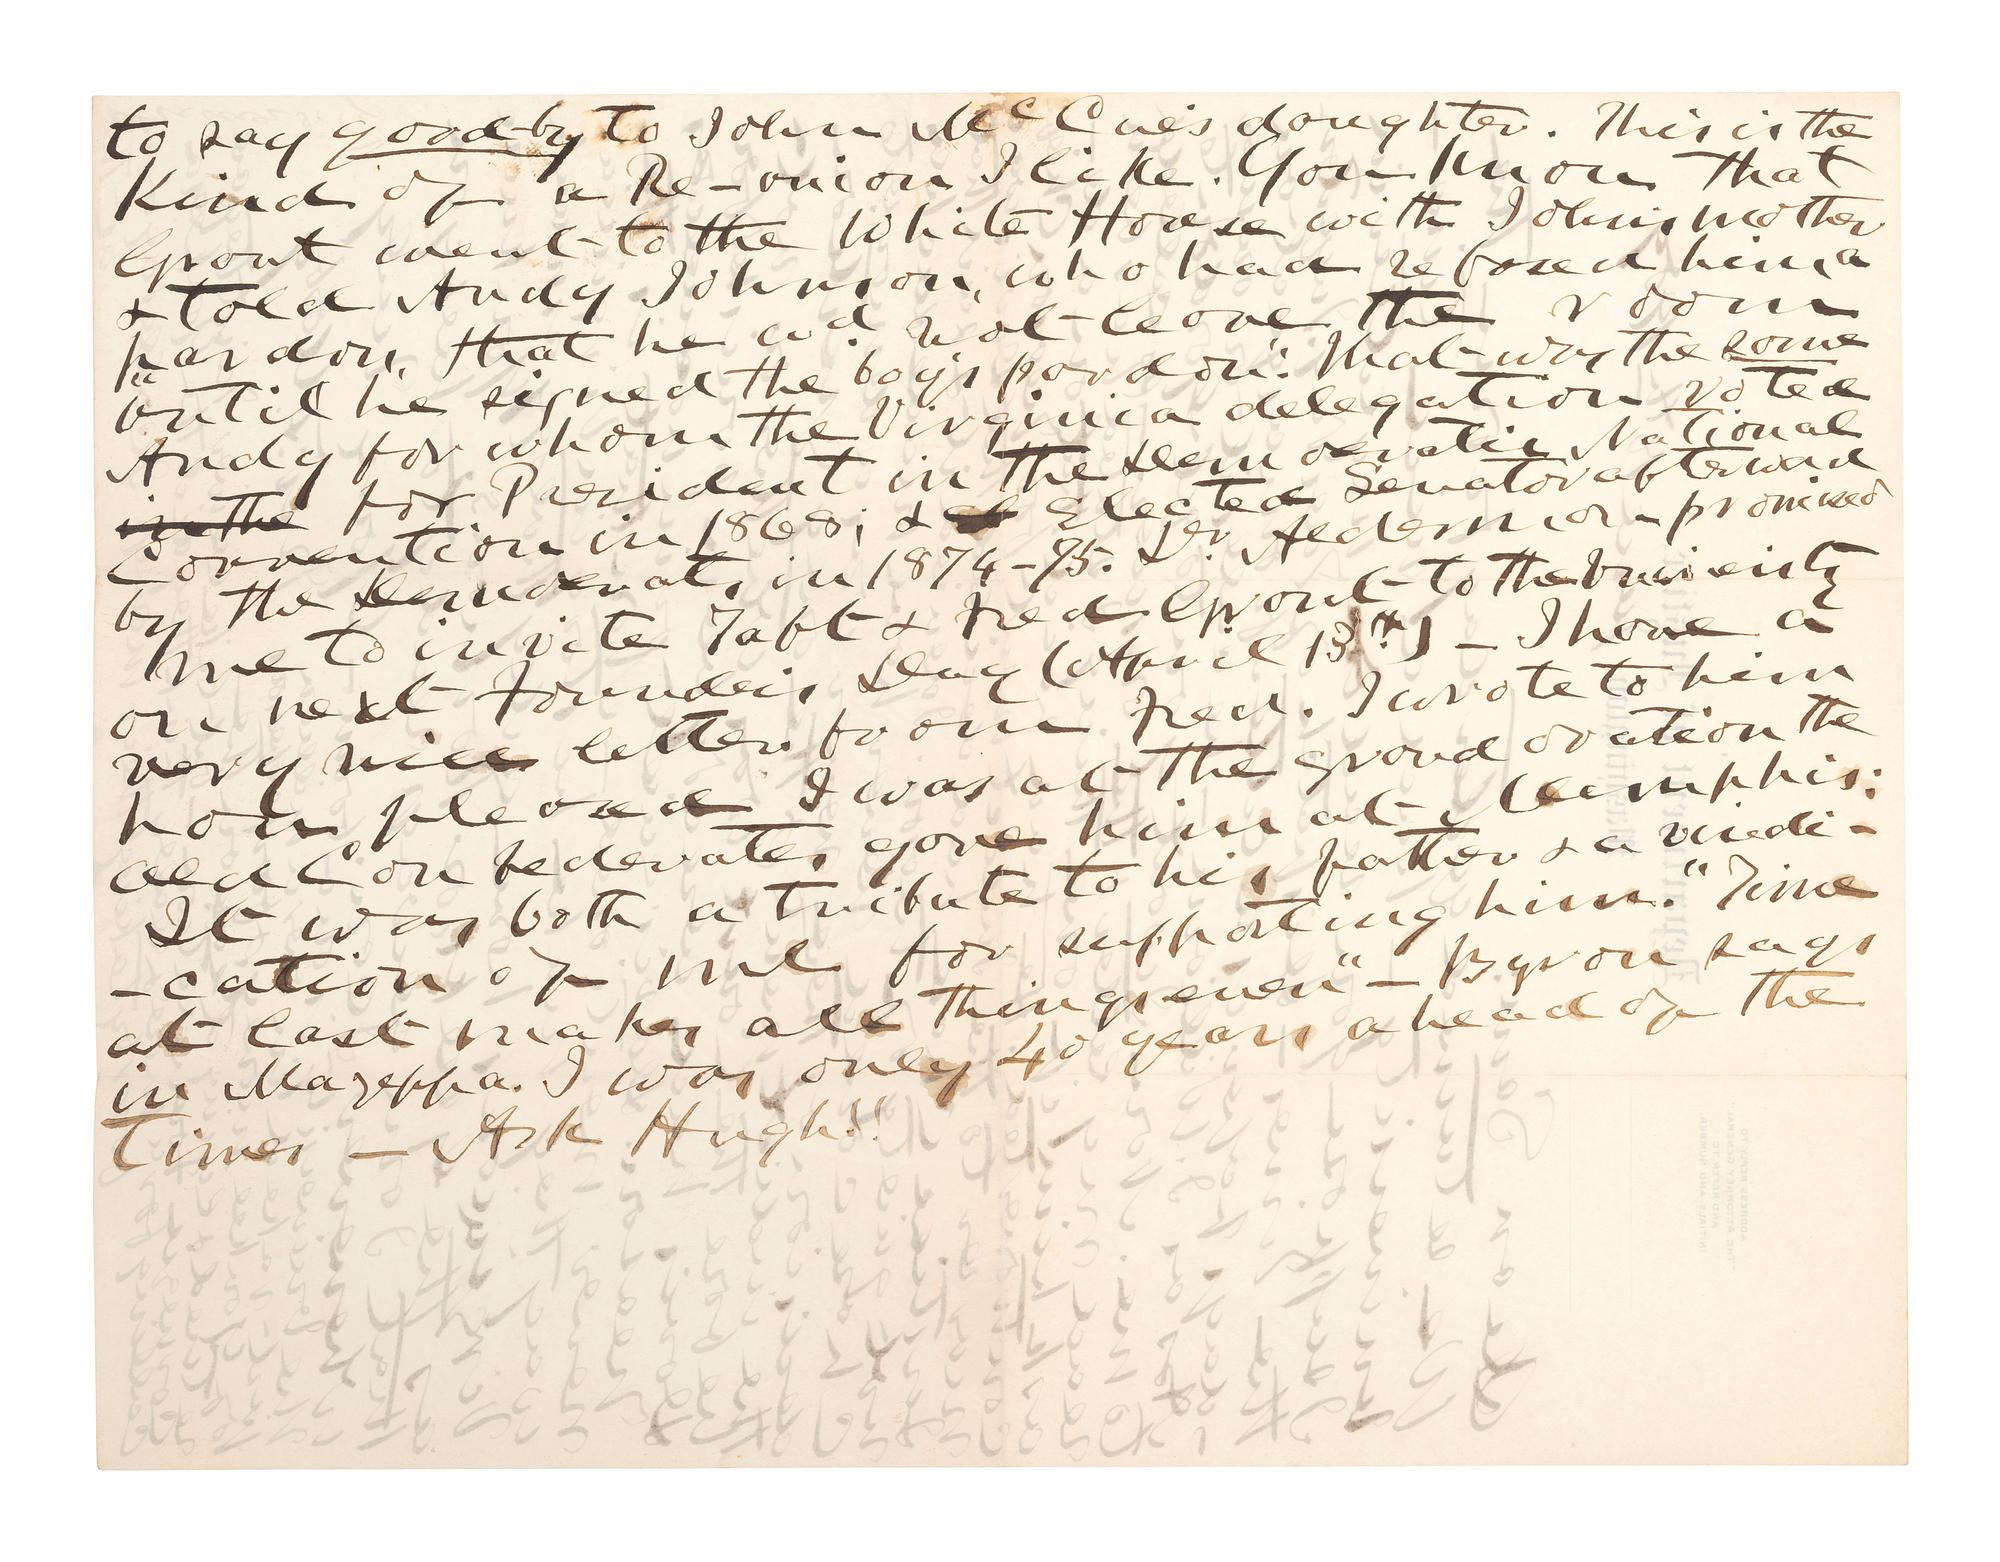 to say good-by to John McCue's daughter. This is the
Kind of a Re-union I like. You know that
Grant went to the White House with John's mother
& told Andy Johnson, who had refused him a
pardon, that he wd. not leave the room
"until he signed the boy's pardon". That was the same
Andy for whom the Virginia delegation voted
in the for President in the Democratic National
Convention in 1868; & elected Senator afterward
by the Democrats in 1874-75. Dr. Alderman promised
me to invite Taft & Fred Grant to the University
on next Founder's Day (April 13th) - I have a
very nice letter from Fred. I wrote to him
how pleased I was at the grand ovation the
old Confederates gave him at Memphis:
It was both a tribute to his father & a vindi-
-cation of me for supporting him. "Time
at last makes all things even" - Byron says
in Mazeppa. I was only 40 years ahead of the
Times - Ask Hugh!!